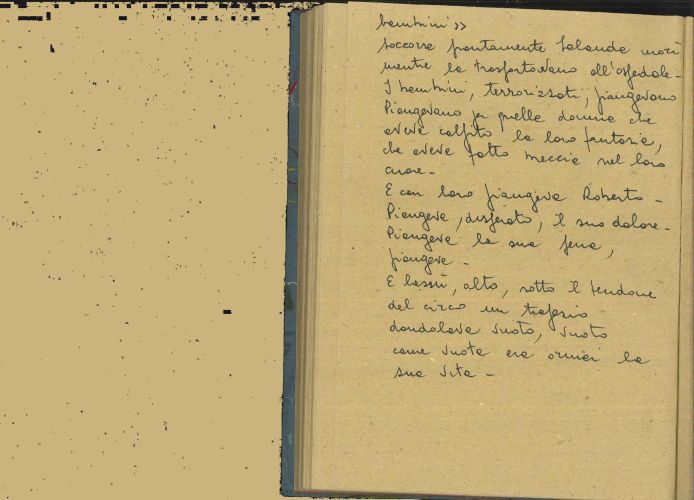 bambini>>
Soccorsa prontamente Jolanda morì
mentre la trasportavano all'ospedale-
I bambini, terrorizzati, piangevano
Piangevano per quella donna che
aveva colpito la loro fantasia,
che aveva fatto breccia nel loro
cuore-
E con loro piangeva Roberto-
Piangeva, disperato, il suo dolore-
Piangeva la sua pena,
piangeva-
E lassù, alto, sotto il tendone
del circo un trapezio
dondolava vuoto, vuoto
come vuota era ormai la
sua vita-